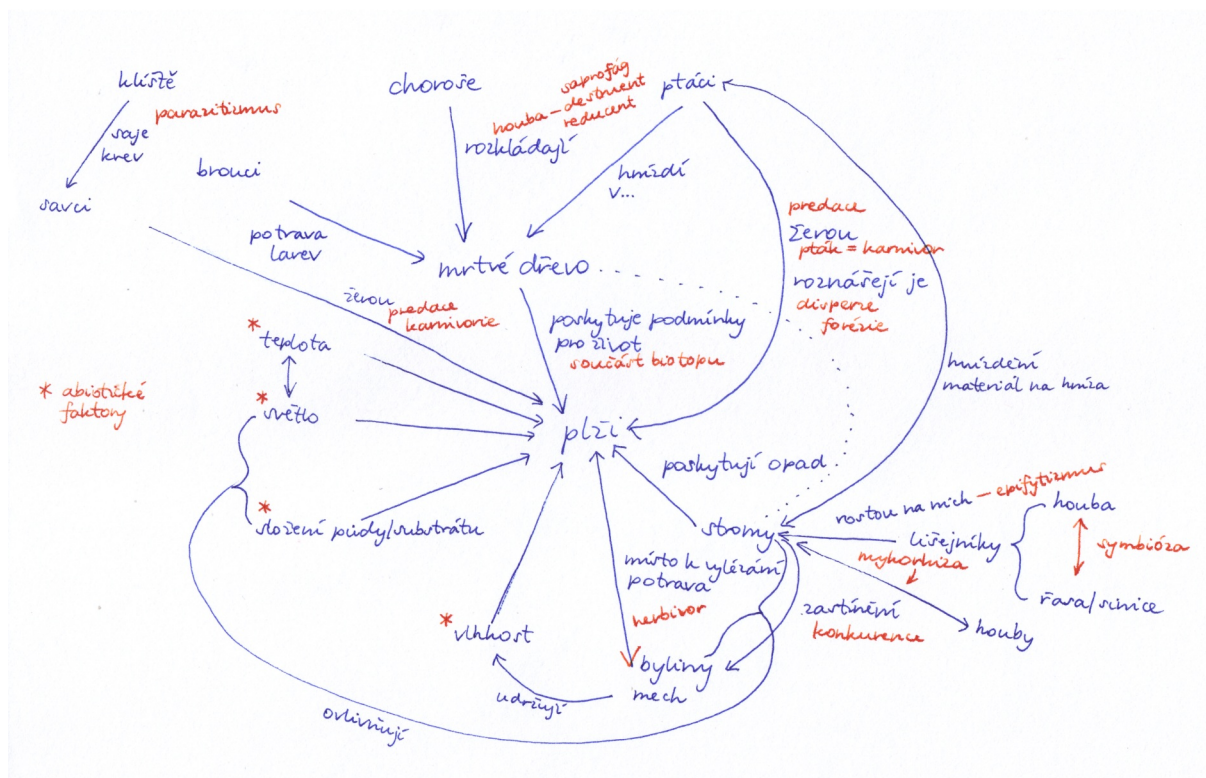 klíště
parazitizmus
saje
krev
savci
brouci
choroše
houba – saprofág
destruent
reducent
rozkládají
ptáci
hnízdí
v...
potrava
larev
mrtvé dřevo
predace
žerou
pták = karnivor
roznášejí je
disperze
forézie
žerou
predace
karnivorie
poskytuje podmínky
pro život
součást biotopu
* teplota
* abiotické
faktory
* světlo
hnízdění
materiál na hnízda
plži
poskytují opad
* složení půdy/substrátu
stromy
rostou na nich – epifytizmus
lišejníky
houba
symbióza
řasa/sinice
mykorhiza
houby
místo k vylézání
potrava
herbivor
zastínění
konkurence
* vlhkost
byliny
mech
udržují
ovlivňují